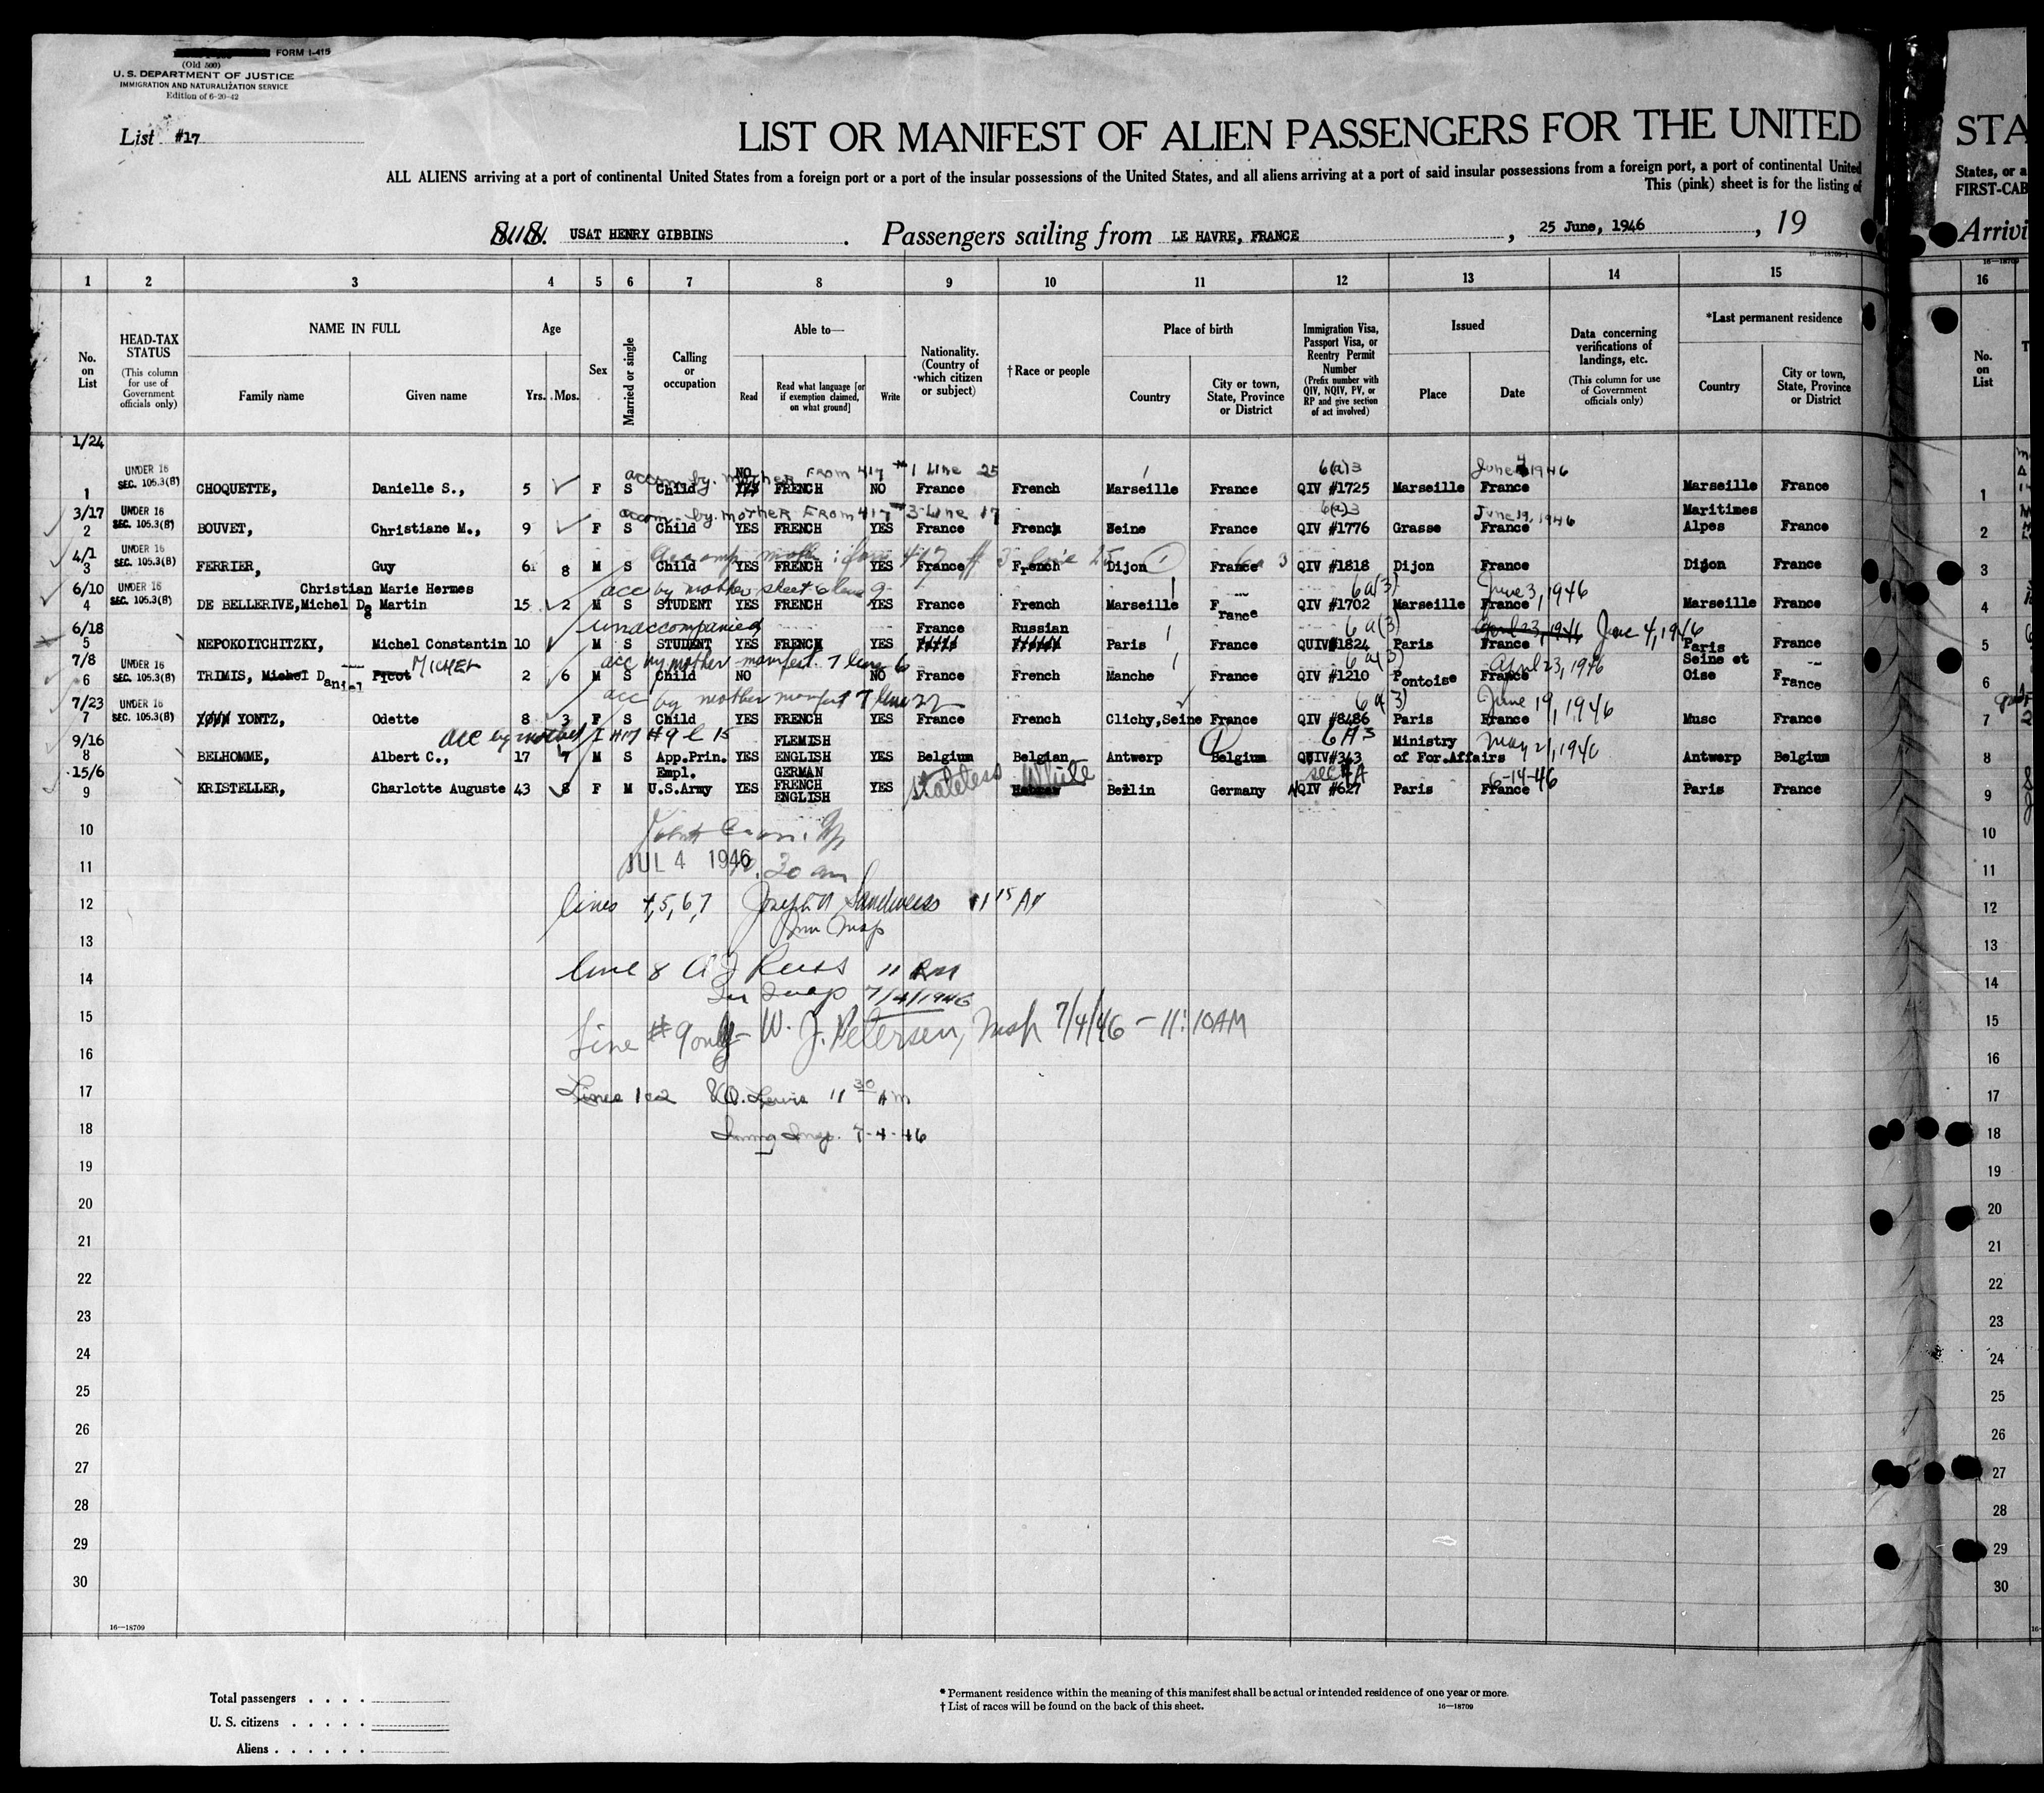 FORM I-415
(Old 500)
U. S. DEPARTMENT OF JUSTICE
IMMIGRATION AND NATURALIZATION SERVICE
Edition of 6-20-42
List #17
LIST OR MANIFEST OF ALIEN PASSENGERS FOR THE UNITED STA
ALL ALIENS arriving at a port of continental United States from a foreign port or a port of the insular possessions of the United States, and all aliens arriving at a port of said insular possessions from a foreign port, a port of continental United States, or a
This (pink) sheet is for the listing of FIRST-CAB
USAT HENRY GIBBINS. Passengers sailing from LE HAVRE, FRANCE, 25 June, 1946, 19 Arrivi
16—18709-1 16—18709
1 2 3 4 5 6 7 8 9 10 11 12 13 14 15 16
No. on List
HEAD-TAX STATUS (This column for use of Government officials only)
NAME IN FULL Family name Given name
Age Yrs. Mos.
Sex
Married or single
Calling or occupation
Able to— Read Read what language [or if exemption claimed, on what ground] Write
Nationality. (Country of which citizen or subject)
†Race or people
Place of birth Country City or town, State, Province or District
Immigration Visa, Passport Visa, or Reentry Permit Number (Prefix number with QIV, NQIV, PV, or RP and give section of act involved)
Issued Place Date
Data concerning verifications of landings, etc. (This column for use of Government officials only)
*Last permanent residence Country City or town, State, Province or District
No. on List
1/24
UNDER 16 NO accom by. mother FROM 417 #1 LINE 25 6(a)3 June 4 1946
1 SEC. 105.3(B) CHOQUETTE, Danielle S., 5 F S Child YES FRENCH NO France French Marseille France QIV #1725 Marseille France Marseille France 1
3/17 UNDER 16 accom. by. mother FROM 417 #3 LINE 17 6(a)3 June 19, 1946 Maritimes
2 SEC. 105.3(B) BOUVET, Christiane M., 9 F S Child YES FRENCH YES France French Seine France QIV #1776 Grasse France Alpes France 2
4/1 UNDER 16 accomp moth 417 # 3 line 25 6a 3
3 SEC. 105.3(B) FERRIER, Guy 6 8 M S Child YES FRENCH YES France French Dijon France QIV #1818 Dijon France Dijon France 3
6/10 UNDER 16 Christian Marie Hermes acc by mother sheet 6 line 9 6a(3) June 3, 1946
4 SEC. 105.3(B) DE BELLERIVE, Michel De Martin 15 2 M S STUDENT YES FRENCH YES France French Marseille France QIV #1702 Marseille France Marseille France 4
6/18 unaccompanied France Russian 6a(3) April 23, 1946 June 4, 1946
5 NEPOKOITCHITZKY, Michel Constantin 10 M S STUDENT YES FRENCH YES Paris France QUIV#1824 Paris France Paris France 5
7/8 UNDER 16 MICHEL acc by mother manifest 7 line 6 6a(3) April 23, 1946 Seine et
6 SEC. 105.3(B) TRIMIS, Michel Daniel Picot 2 6 M S Child NO NO France French Manche France QIV #1210 Pontoise France Oise France 6
7/23 UNDER 16 acc by mother manifest 7 line 22 6a(3) June 19, 1946
7 SEC. 105.3(B) YONTZ, Odette 8 3 F S Child YES FRENCH YES France French Clichy, Seine France QIV #8486 Paris France Musc France 7
9/16 acc by mother #9 l 15 FLEMISH 6A3 Ministry May 21, 1946
8 BELHOMME, Albert C., 17 7 M S App.Prin. YES ENGLISH YES Belgium Belgian Antwerp Belgium QUIV#343 of For.Affairs Antwerp Belgium 8
15/6 Empl. GERMAN Stateless White sec 4A 6-14-46
9 KRISTELLER, Charlotte Auguste 43 8 F M U.S.Army YES FRENCH ENGLISH YES Hebrew Berlin Germany NQIV #627 Paris France Paris France 9
10
JUL 4 1946 30 am
11
12 lines 4,5,6,7 Joseph 11 15 AM
13
14 line 8 A J Reiss 11 AM
7/4/1946
15 Line #9 only W. J. Petersen, Insp 7/4/46 – 11:10 AM
16
17 Lines 1 & 2 Lewis 11 30 AM
18 Immig Insp. 7-4-46
19
20
21
22
23
24
25
26
27
28
29
30
16—18709
Total passengers
U. S. citizens
Aliens
* Permanent residence within the meaning of this manifest shall be actual or intended residence of one year or more.
† List of races will be found on the back of this sheet. 16—18709